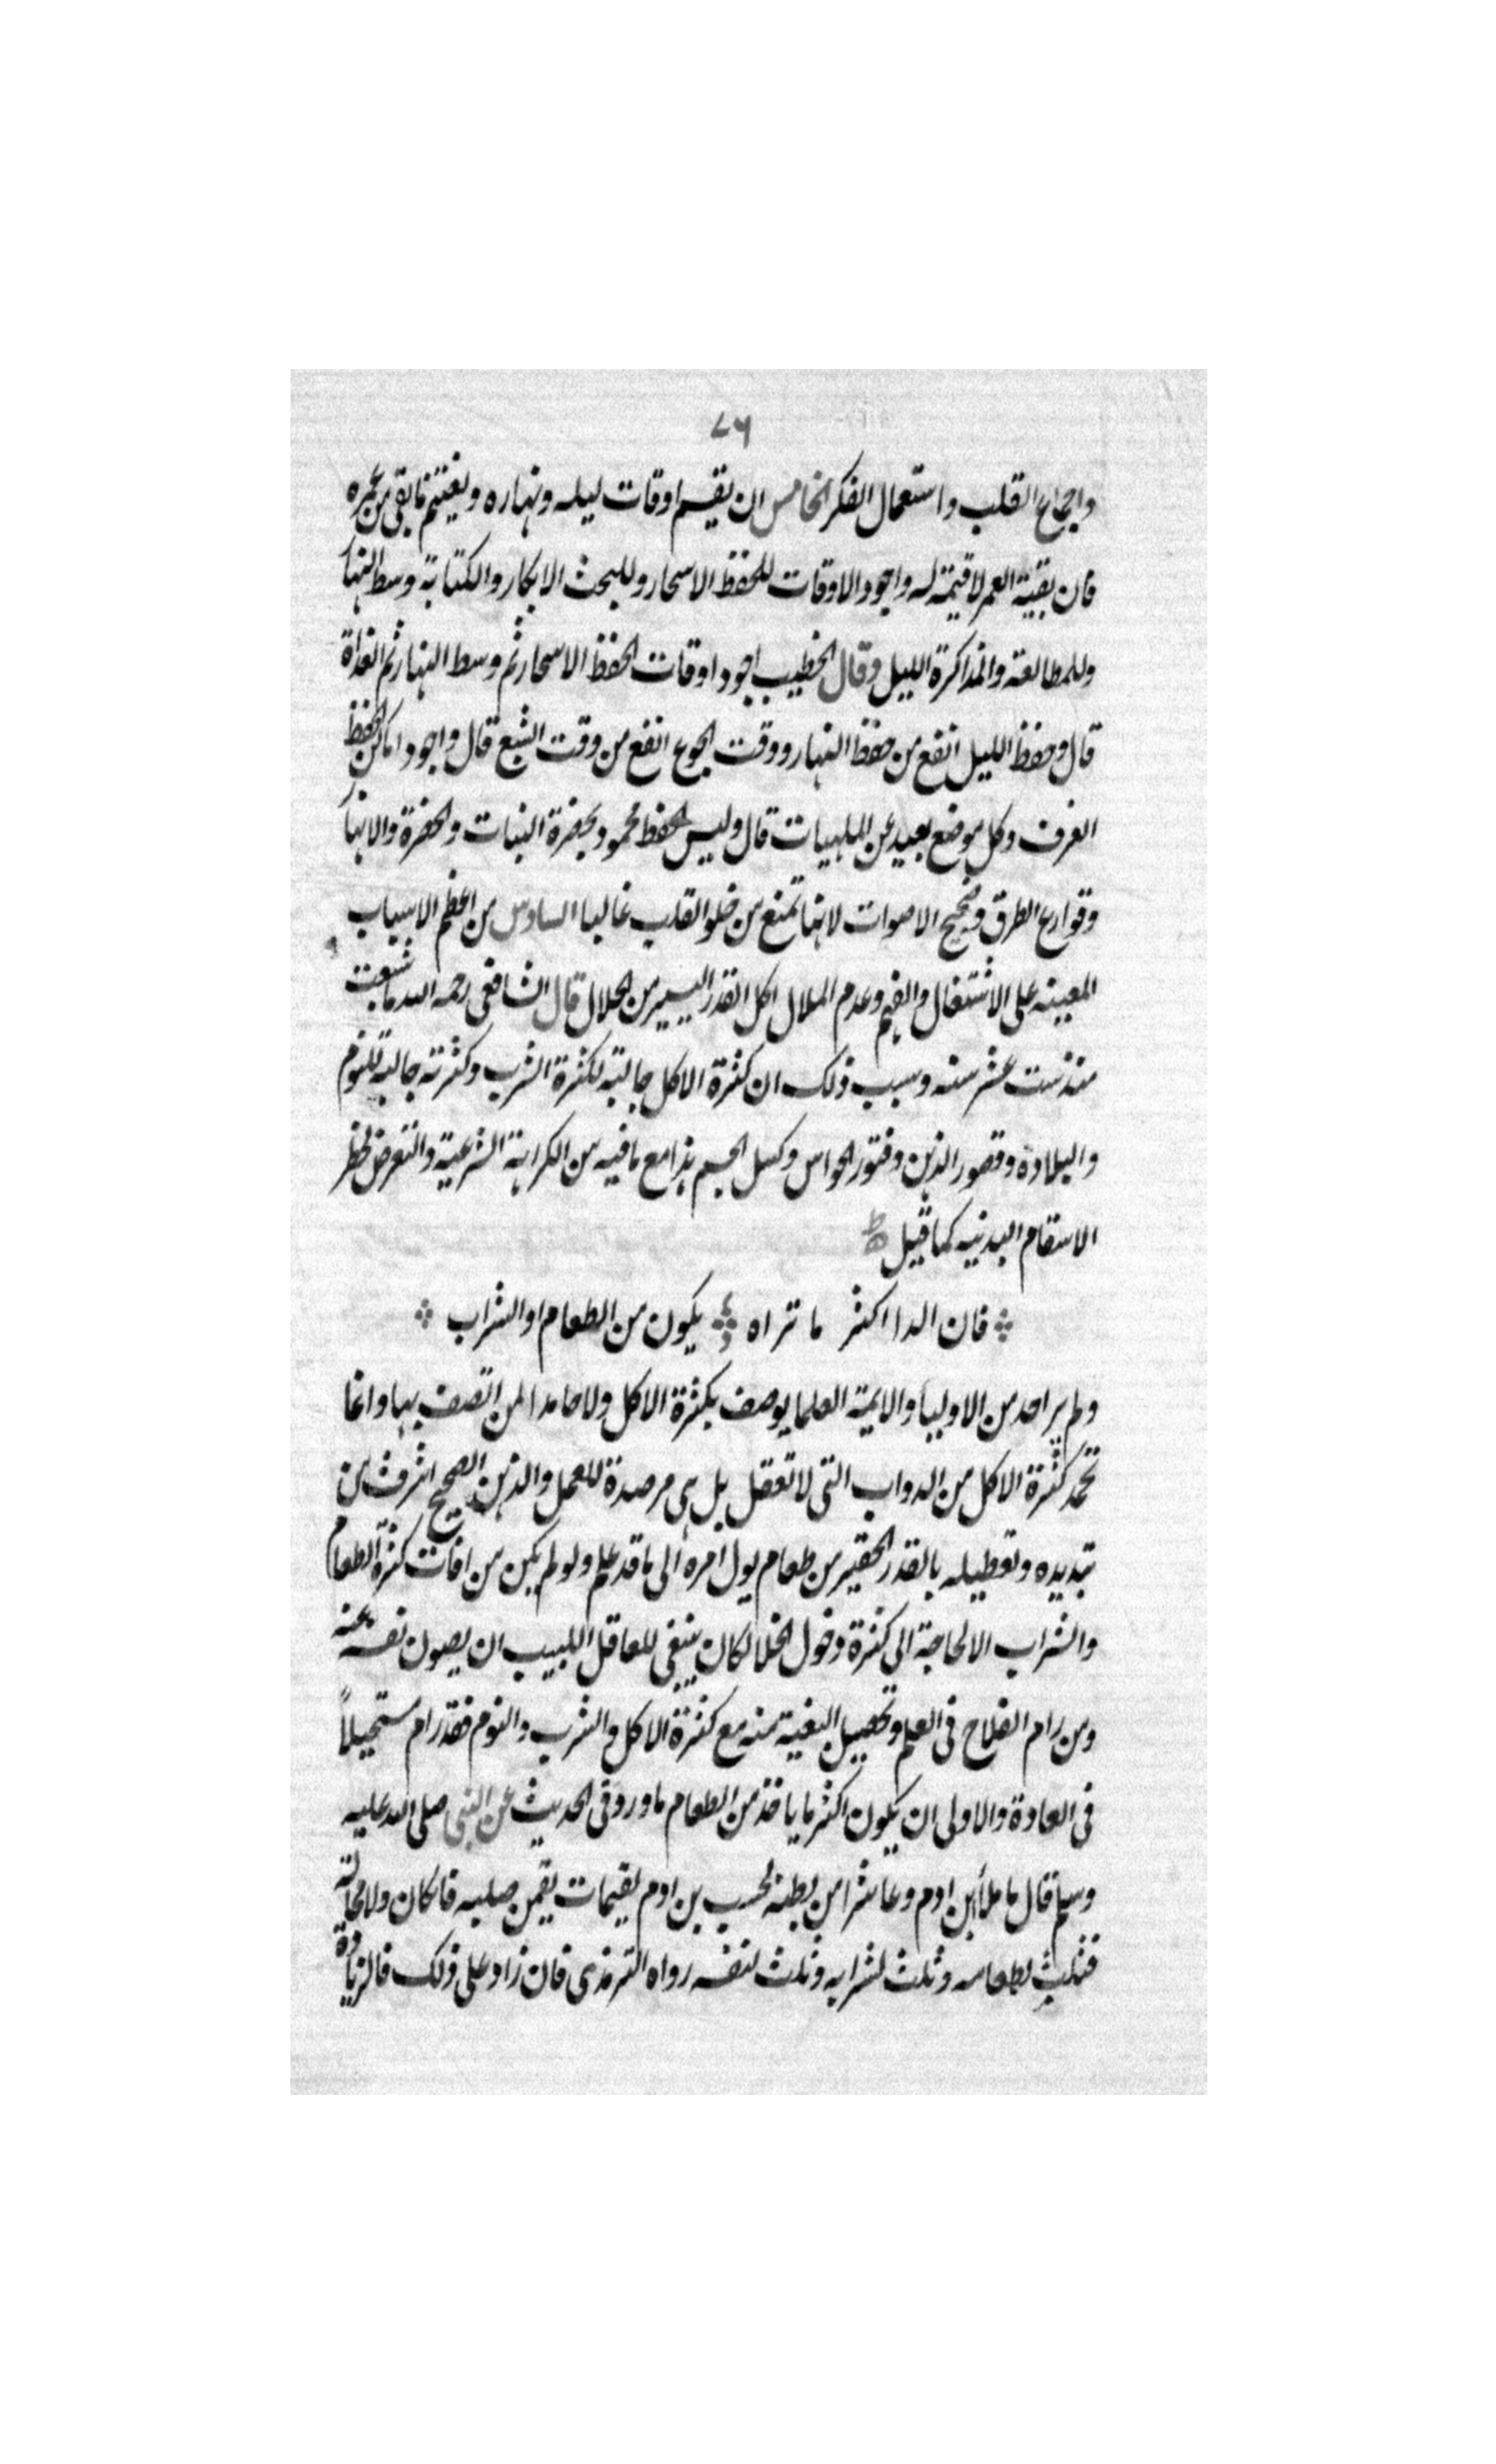 ٧٦
واجماع القلب واستعمال الفكر الخامس ان يقسم اوقات ليله ونهاره ويغتنم ما بقي من عمره
فان بقية العمر لا قيمة له واجود الاوقات للحفظ الاسحار وللبحث الابكار والكتابة وسط النهار
وللمطالعة والمذاكرة الليل وقال الخطيب اجود اوقات الحفظ الاسحار ثم وسط النهار ثم الغداة
قال وحفظ الليل انفع من حفظ النهار ووقت الجوع انفع من وقت الشبع قال واجود اماكن الحفظ
الغرف وكل موضع بعيد عن الملهيات قال وليس الحفظ محمود بحضرة النبات والخضرة والانهار
وقوارع الطرق وضجيج الاصوات لانها تمنع من خلو القلب غالبا السادس من اعظم الاسباب
المعينه على الاشتغال والفهم وعدم الملال اكل القدر اليسير من الحلال قال الشافعي رحمه الله ما شبعت
منذ ست عشر سنه وسبب ذلك ان كثرة الاكل جالبة لكثرة الشرب وكثرته جالبه للنوم
والبلادة وقصور الذهن وفتور الحواس وكسل الجسم هذا مع ما فيه من الكراهة الشرعية والتعرض لخطر
الاسقام البدنيه كما قيل
فان الدا اكثر ما تراه يكون من الطعام او الشراب
ولم ير احد من الاوليا والايمة العلما يوصف بكثرة الاكل ولا حامدا لمن اتصف بها وانما
تحمد كثرة الاكل من الدواب التي لا تعقل بل هي مرصدة للعمل والذهن الصحيح اشرف من
تبديده وتعطيله بالقدر الحقير من طعام يول امره الى ما قد علم ولو لم يكن من افات كثرة الطعام
والشراب الا الحاجة الى كثرة دخول الخلا لكان ينبغي للعاقل اللبيب ان يصون نفسه عنه
ومن رام الفلاح في العلم وتحصيل البغية منه مع كثرة الاكل والشرب والنوم فقد رام مستحيلاً
في العادة والاولى ان يكون اكثر ما ياخذ من الطعام ما ورد في الحديث عن النبي صلى الله عليه
وسلم قال ما ملأ ابن ادم وعا شرا من بطنه بحسب بن ادم لقيمات يقمن صلبه فان كان ولا محالة
فثلث لطعامه وثلث لشرابه وثلث لنفسه رواه الترمذي فان زاد على ذلك فالزيادة